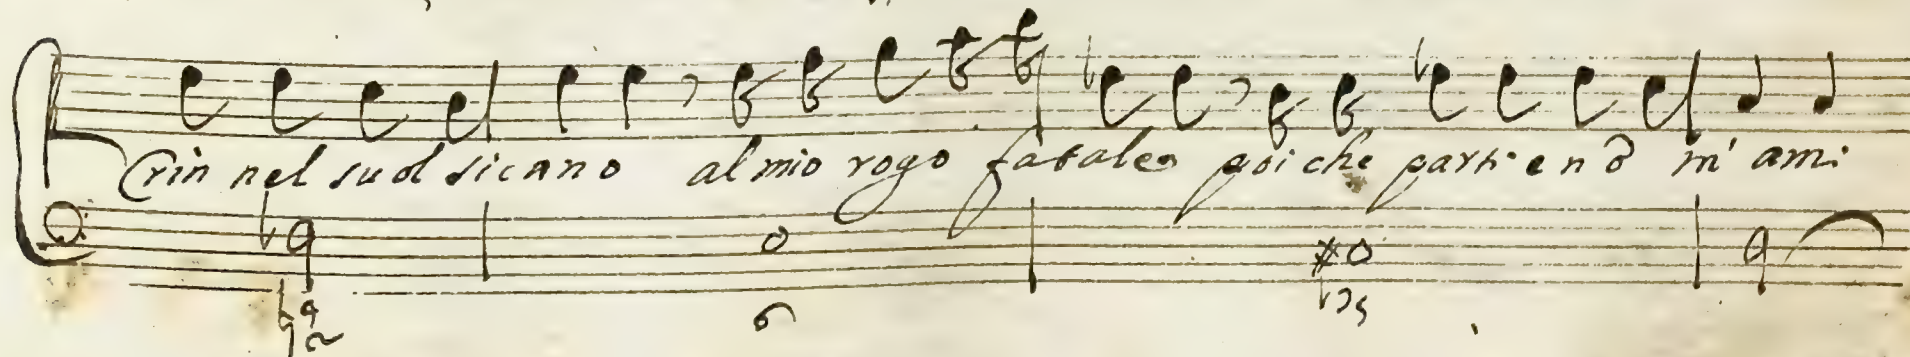 Crin nel suol sicano al mio rogo fatale poiche partiend m'ami
6